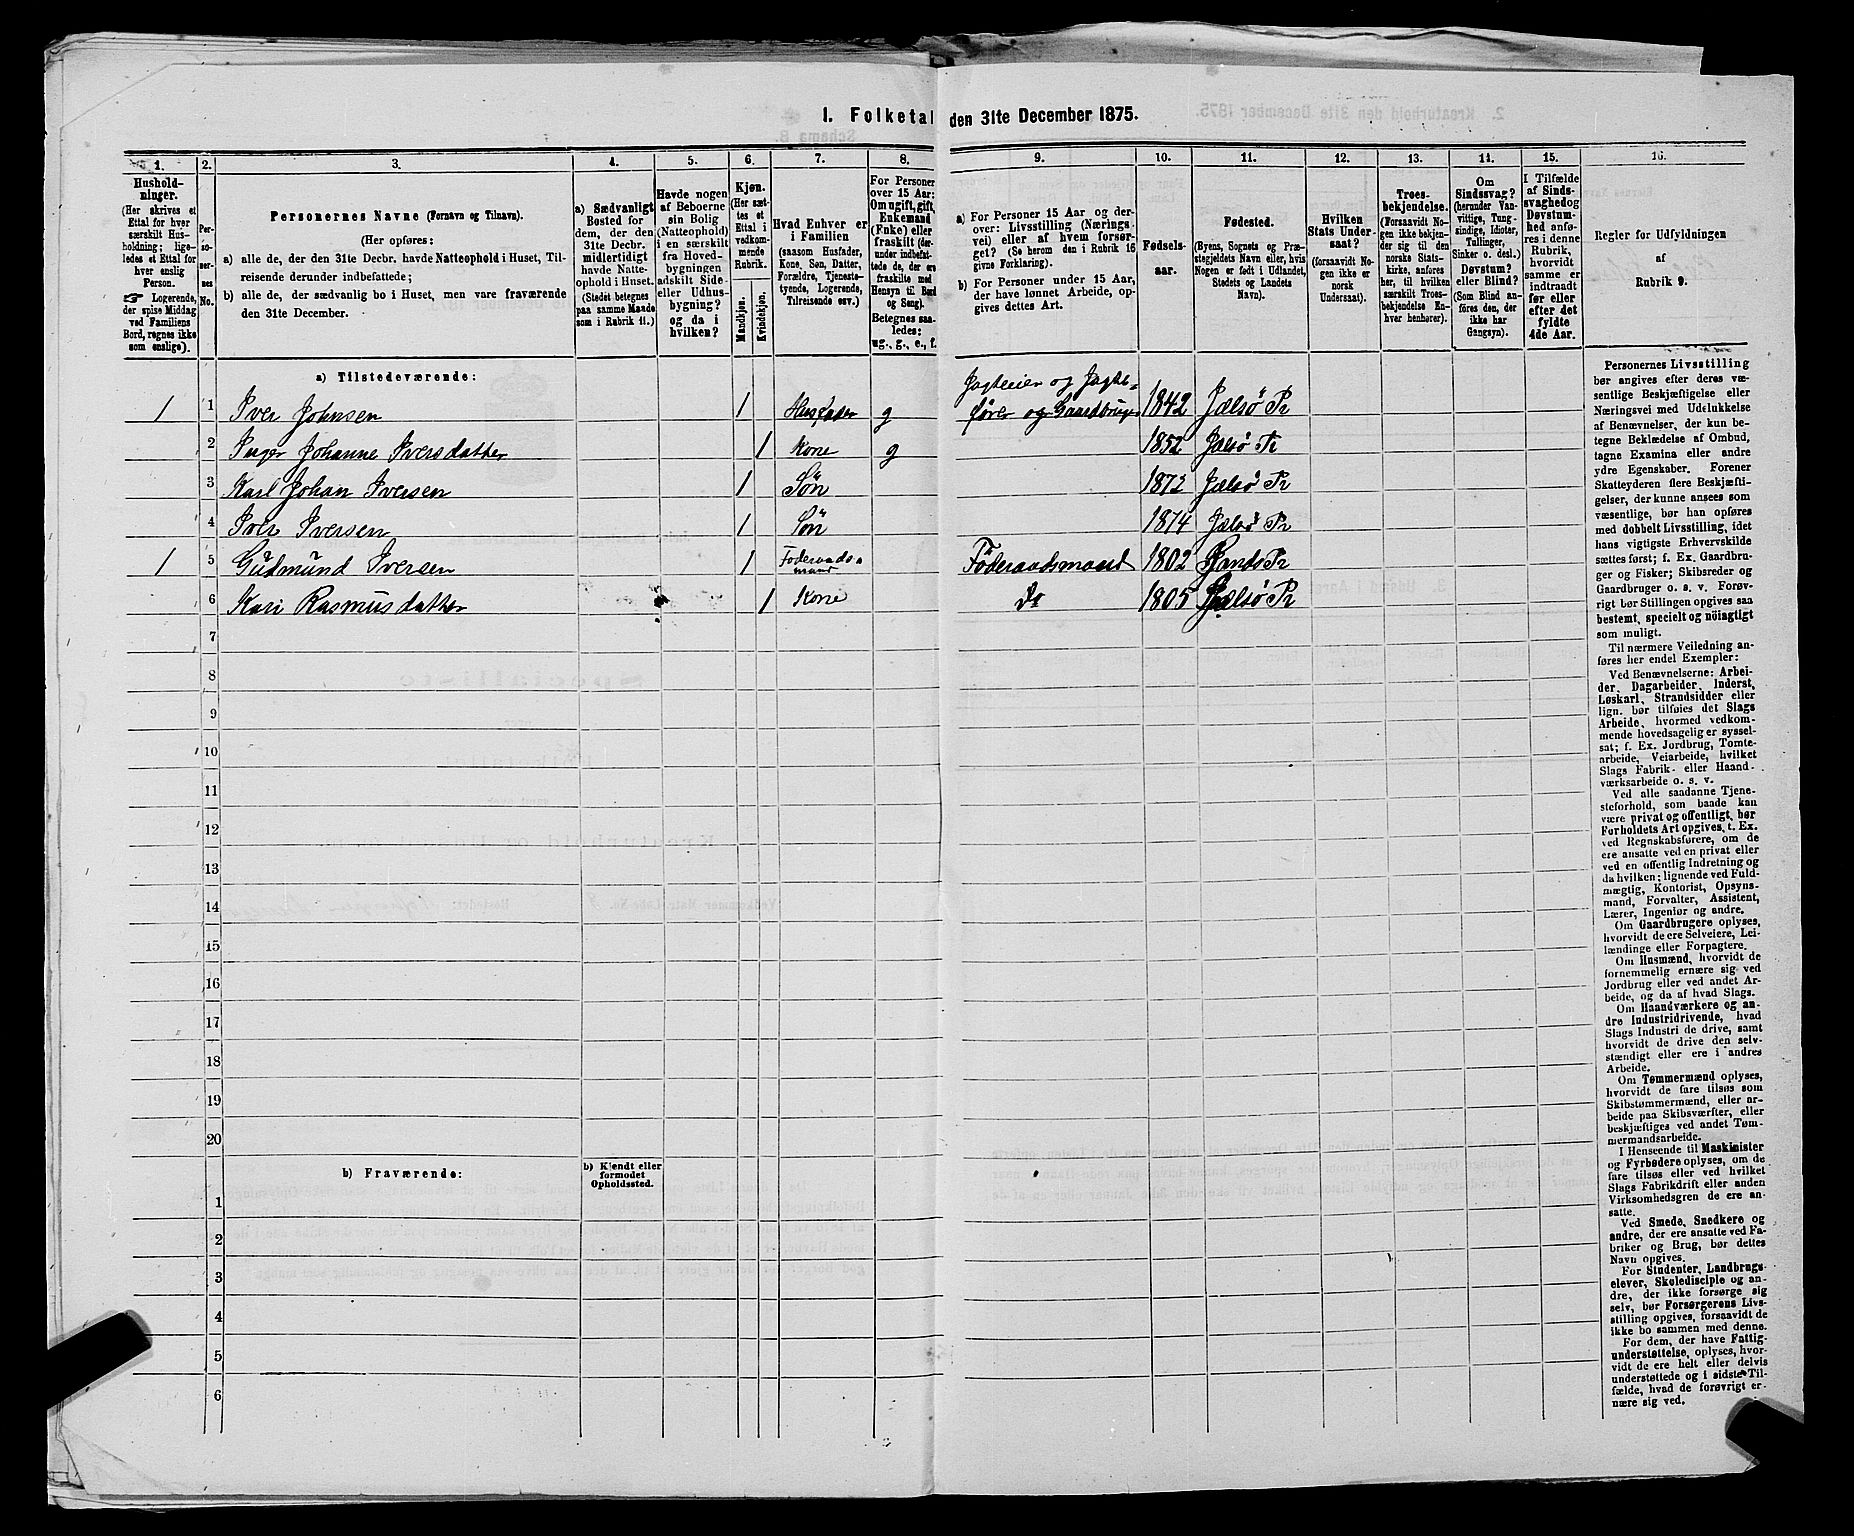 I. Folketal den 31te December 1875.
1. 2. 3. 4. 5. 6. 7. 8. 9. 10. 11. 12. 13. 14. 15. 16.
Hushold-
ninger.
(Her skrives et
Ettal for hver
særskilt Hus-
holdning; lige-
ledes et Ettal for
hver enslig
Person.
☞ Logerende,
der spise Middag
ved Familiens
Bord, regnes ikke
som enslige).
Per-
so-
ner-
nes
No.
Personernes Navne (Fornavn og Tilnavn).
(Her opføres:
a) alle de, der den 31te Decbr. havde Natteophold i Huset, Til-
reisende derunder indbefattede;
b) alle de, der sædvanlig bo i Huset, men vare fraværende
den 31te December.
a) Sædvanligt
Bosted for
dem, der den
31te Decbr.
midlertidigt
havde Natte-
ophold i Huset.
(Stedet betegnes
paa samme Maade
som i Rubrik 11.)
Havde nogen
af Beboerne
sin Bolig
(Natteophold)
i en særskilt
fra Hoved-
bygningen
adskilt Side-
eller Udhus-
bygning?
og da i
hvilken?
Kjøn.
(Her sæt-
tes et
Ettal i
vedkom-
mende
Rubrik.
Mandkjøn.
Kvindekjøn.
Hvad Enhver er
i Familien
(saasom Husfader,
Kone, Søn, Datter,
Forældre, Tjeneste-
tyende, Logerende,
Tilreisende osv.)
For Personer
over 15 Aar:
Om ugift, gift,
Enkemand
(Enke) eller
fraskilt (der-
under indbefat-
tede de, der ere
fraskilte med
Hensyn til Bord
og Seng).
Betegnes saa-
ledes:
ug., g., e., f.
a) For Personer 15 Aar og der-
over: Livsstilling (Nærings-
vei) eller af hvem forsør-
get? (Se herom den i Rubrik 16
givne Forklaring).
b) For Personer under 15 Aar,
der have lønnet Arbeide, op-
gives dettes Art.
Fødsels-
aar.
Fødested.
(Byens, Sognets og Præ-
stegjeldets Navn eller, hvis
Nogen er født i Udlandet,
Stedets og Landets
Navn).
Hvilken
Stats Under-
saat?
(forsaavidt No-
gen ikke er
norsk
Undersaat).
Troes-
bekjendelse.
(Forsaavidt No-
gen ikke bekjen-
der sig til den
norske Stats-
kirke, anføres
her, til hvilken
særskilt Troes-
bekjendelse En-
hver henhører).
Om
Sindssvag?
(herunder Van-
vittige, Tung-
sindige, Idioter,
Tullinger,
Sinker o. desl.)
Døvstum?
eller Blind?
(Som Blind an-
føres den, der
ikke har
Gangsyn).
I Tilfælde
af Sinds-
svaghed og
Døvstum-
hed anfø-
res i denne
Rubrik,
hvorvidt
samme er
indtraadt
før eller
efter det
fyldte
4de Aar.
Regler for Udfyldningen
af
Rubrik 9.
a) Tilstedeværende:
1 1 Iver Johnsen 1 Husfader g Jagteeier og Jagte-
fører og Gaardbruger 1842 Jælsø Pr
2 Inger Johanne Iversdatter 1 Kone g 1852 Jælsø Pr
3 Karl Johan Iversen 1 Søn 1872 Jælsø Pr
4 Iver Iversen 1 Søn 1874 Jælsø Pr
1 5 Gudmund Iversen 1 Føderaads-
mand Føderaadsmand 1802 Sands Pr
6 Kari Rasmusdatter 1 Kone Do 1805 Jælsø Pr
7
8
9
10
11
12
13
14
15
16
17
18
19
20
b) Fraværende:
b) Kjendt eller
formodet
Opholdssted.
1
2
3
4
5
6
Personernes Livsstilling
bør angives efter deres væ-
sentlige Beskjæftigelse eller
Næringsvei med Udelukkelse
af Benævnelser, der kun be-
tegne Beklædelse af Ombud,
tagne Examina eller andre
ydre Egenskaber. Forener
Skatteyderen flere Beskjæfti-
gelser, der kunne ansees som
væsentlige, bør han opføres
med dobbelt Livsstilling, idet
hans vigtigste Erhvervskilde
sættes først; f. Ex. Gaardbru-
ger og Fisker; Skibsreder og
Gaardbruger o. s. v. Forøv-
rigt bør Stillingen opgives saa
bestemt, specielt og nöiagtigt
som muligt.
Til nærmere Veiledning an-
føres her endel Exempler:
Ved Benævnelserne: Arbei-
der, Dagarbeider, Inderst,
Løskarl, Strandsidder eller
lign. bør tilføies det Slags
Arbeide, hvormed vedkom-
mende hovedsagelig er syssel-
sat; f. Ex. Jordbrug, Tomte-
arbeide, Veiarbeide, hvilket
Slags Fabrik- eller Haand-
værksarbeide o. s. v.
Ved alle saadanne Tjene-
steforhold, som baade kan
være privat og offentligt, bør
Forholdets Art opgives, t. Ex.
ved Regnskabsførere, om de
ere ansatte ved en privat eller
ved en offentlig Indretning og
da hvilken; lignende ved Fuld-
mægtig, Kontorist, Opsyns-
mand, Forvalter, Assistent,
Lærer, Ingeniør og andre.
Om Gaardbrugere oplyses,
hvorvidt de ere Selveiere, Lei-
lændinge eller Forpagtere.
Om Husmænd, hvorvidt de
fornemmelig ernære sig ved
Jordbrug eller ved andet Ar-
beide, og da af hvad Slags.
Om Haandværkere og an-
dre Industridrivende, hvad
Slags Industri de drive, samt
hvorvidt de drive den selv-
stændigt eller ere i andres
Arbeide.
Om Tømmermænd oplyses,
hvorvidt de fare tilsøs som
Skibstømmermænd, eller ar-
beide paa Skibsværfter, eller
beskjæftiges ved andet Tøm-
mermandsarbeide.
I Henseende til Maskinister
og Fyrbødere oplyses, om de
fare tilsøs eller ved hvilket
Slags Fabrikdrift eller anden
Virksomhedsgren de ere an-
satte.
Ved Smede, Snedkere og
andre, der ere ansatte ved Fa-
briker og Brug, bør dettes
Navn opgives.
For Studenter, Landbrugs-
elever, Skoledisciple og an-
dre, der ikke forsørge sig
selv, bør Forsørgerens Livs-
stilling opgives, forsaavidt de
ikke bo sammen med denne.
For dem, der have Fattig-
understøttelse, oplyses, hvor-
vidt de ere helt eller delvis
understøttede og i sidste Til-
fælde, hvad de forøvrigt er-
nære sig ved.